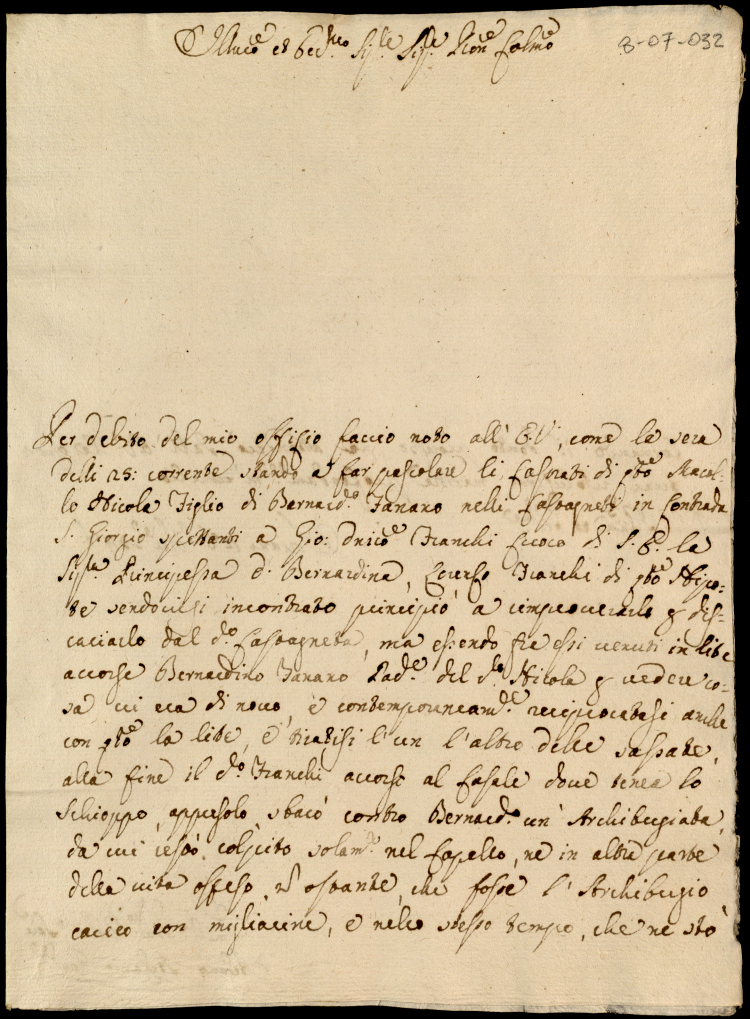 Illmo et Eccmo Sige Sige Pron Colmo
8-07-032
Per debito del mio offisio faccio noto all' E.V., come la sera
delli 25: corrente stando a far pascolare li Castrati di qto Macel-
lo Nicola Figlio di Bernardo Fanaro nelli Castagneti in Contrada
S. Giorgio spettanti a Gio: Dnico Franchi Cuoco di S. E. la
Sigra Principessa D. Bernardina, Lorenso Franchi di qto Nipo-
te sendocisi incontrato principiò a improverarlo p dis-
caciarlo dal do Castagneto, ma essendo fra essi venuti in lite
accorse Bernardino Fanaro Pade del do Nicola p vedere co-
sa vi era di novo, e contemporaneamte reciprocatasi anche
con qto la lite, e tiratisi l'un l'altro delle sassate,
alla fine il do Franchi accorso al Casale dove tenea lo
schioppo, appesolo sbarò contro Bernardo un' Archibugiata,
da cui restò colpito solamte nel Capello, ne in altra parte
della vita offeso, nō ostante, che fosse l' Archibugio
carico con migliarine, e nello stesso tempo, che ne stò